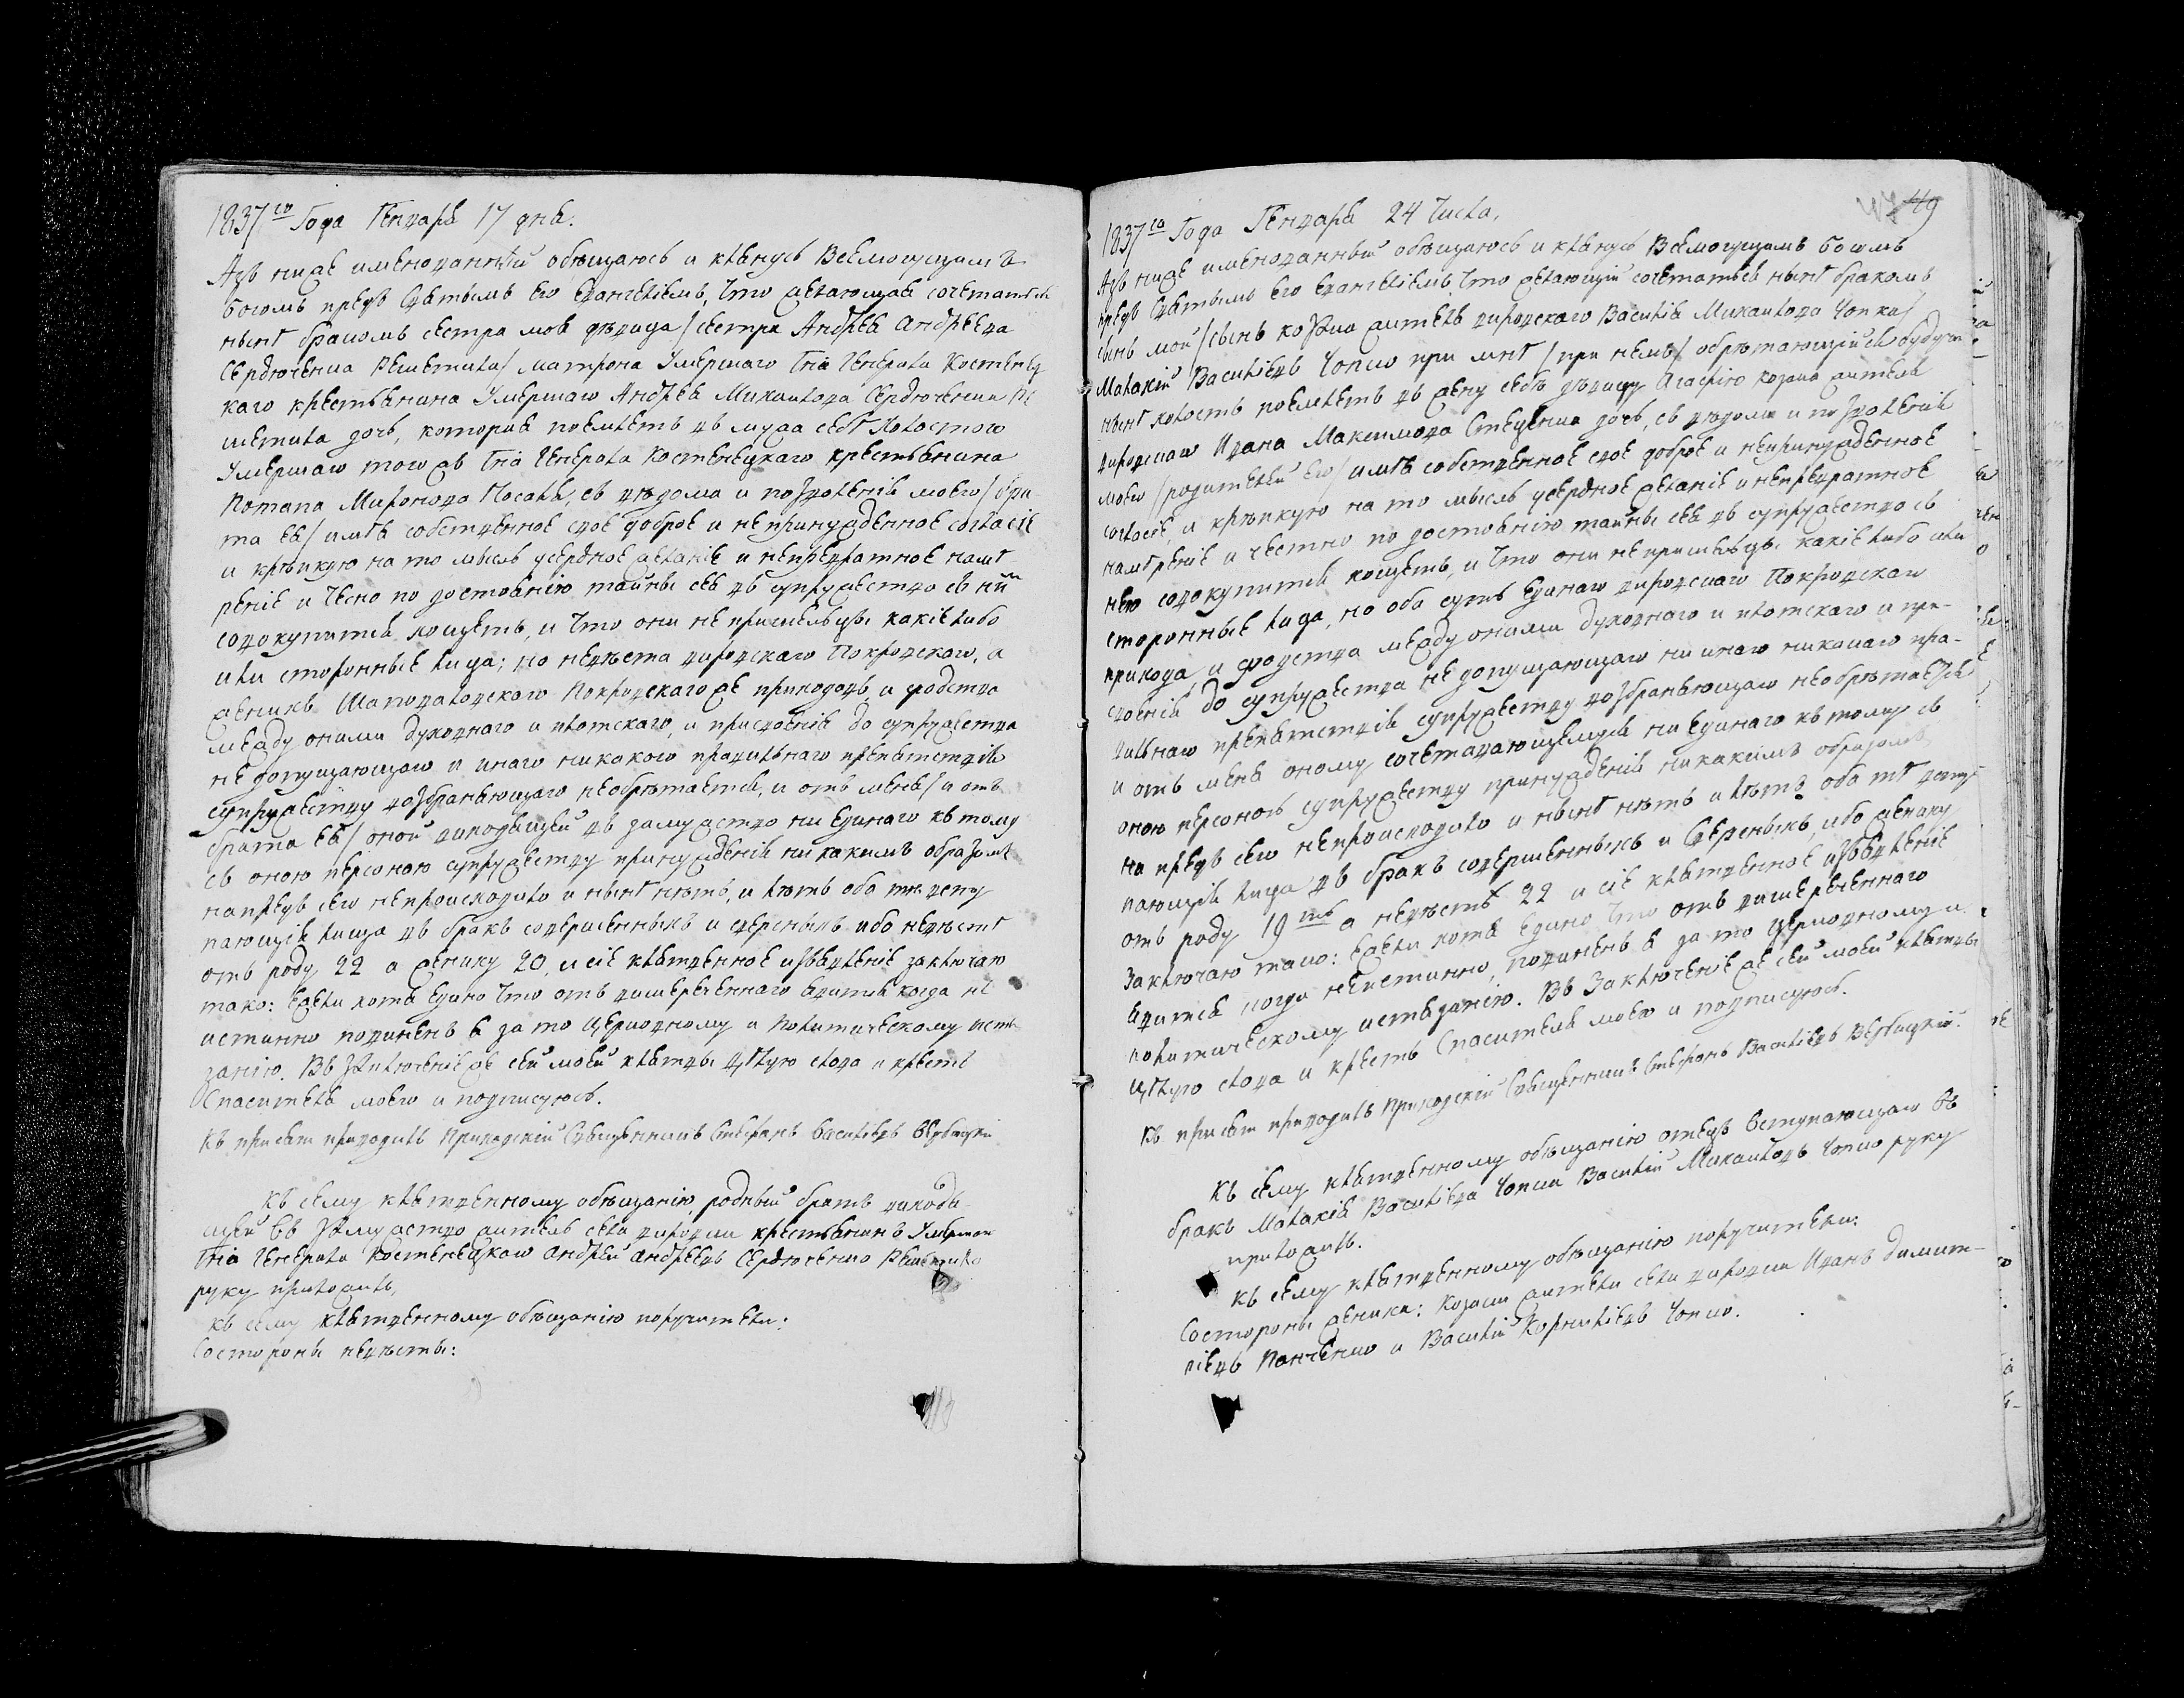 1837го Года Генваря 17 дня.
Азъ ниже именованный обѣщаюсь и клянусь Всемогущимъ
Богомъ предъ Святымъ Его Евангелiемъ, что желающая сочетатися
нынѣ бракомъ сестра моя дѣвица / сестра Андрея Андреева
Сердюченка Решетила / Матрона Умершаго Гна Генерала Костенец
каго крестьянина Умершаго Андрея Михайлова Сердюченка Ре
шетила дочь, которая поемлетъ въ мужа себѣ Холостого
Умершаго того жъ Гна Генерала Костенецкаго крестьянина
Потапа Миронова Носаля, съ вѣдома и позволенiя моего / бра-
та ея / имѣя собственное свое доброе и непринужденное согласiе
и крѣпкую на то мысль усердное желанiе и непревратное намѣ
ренiе и чесно по достоянiю тайны сея въ супружество съ ним
совокупится хощетъ, и что они не пришельцы какiе либо
или сторонные лица; но невѣста вировского Покровского, а
женихъ Шаповаловского Покровского же приходовъ, и средства
между оними духовнаго и плотскаго, и присвоенiя до супружества
не допущающаго и инаго никакого правильнаго препятствiя
супружеству возбраняющаго необрѣтается, и отъ меня / и отъ
брата ея / оной виходящей въ замужство ни единаго къ тому
съ оною персоною супружеству принужденiя никакимъ образомъ
напредъ сего непроисходило и нынѣ нѣтъ, и лѣтъ оба тѣ всту
пающiя лица въ бракъ совершенныхъ и сверсныхъ ибо невѣстѣ
отъ роду 22 а жениху 20, и сiе клятвенное извѣщенiе заключаю
тако: Ежели хотя едино что отъ вишереченнаго явится когда не
истинно повиненъ я за то Церковному и Политическому истя
занiю. Въ Заключенiе же сей моей клятвы Цѣлую слова и крестъ
Спасителя моего и подписуюсь.
Къ присяги приводилъ Приходскiй Священникъ Стефанъ Василiевъ Вербицкiй
Къ сему клятвенному обѣщанiю, родный братъ виходя
щей въ Замужство житель села Вировки крестьянинъ Умершаго
Гна Генерала Костенецкаго Андрей Андреевъ Сердюченко Решетило
руку приложилъ,
къ сему клятвенному обѣщанiю поручители:
Состороны невѣсты:
49
1837го Года Генваря 24 Числа,
Азъ ниже именованный обѣщаюсь и клянусь Всемогущимъ Богомъ
предъ Святымъ Его Евангелiемъ, что желающiй сочетатися нынѣ бракомъ
сынъ мой / сынъ козака жителя вировского Василiя Михайлова Чопка /
Малахiй Василiевъ Чопко при мнѣ / при немъ / обрѣтающiйся будучи
нынѣ холостъ поемлетъ въ жену себѣ дѣвицу Агафiю козака жителя
вировскаго Ивана Максимова Стеценка дочь, съ вѣдома и позволенiя
моего / родителей его / имѣя собственное свое доброе и непринужденное
согласiе, и крѣпкую на то мысль усердное желанiе и непревратное
намѣренiе и честно по достоянiю тайны сея въ супружество съ
нею совокупится хощетъ, и что они не пришельцы какiе либо или
сторонные лица, но оба суть единаго вировского Покровскаго
прихода, и средства между оними духовнаго и плотскаго и при-
своенiя до супружества не допущающаго ни инаго никакаго пра-
вильнаго препятствiя супружеству возбраняющаго необрѣтается
и отъ меня оному сочетавающемуся ни единаго къ тому съ
оною персоною супружеству принужденiя никакимъ образомъ
на предъ сего непроисходило и нынѣ нѣтъ и лѣтъ оба тѣ всту
пающiя лица въ бракъ совершенныхъ и сверсныхъ, ибо жениху
отъ роду 19ть а невѣстѣ 22 и сiе клятвенное извѣщенiе
Заключаю тако: Ежели хотя едино что отъ вишереченнаго
явится когда неистинно, повиненъ я за то Церковному и
политическому истязанiю. Въ Заключенiе же сей моей клятвы
Цѣлую слова и крестъ Спасителя моего и подписуюсь.
Къ присяги приводилъ Приходскiй Священникъ Стефанъ Василiевъ Вербицкiй.
Къ сему клятвенному обѣщанiю отецъ вступающаго въ
бракъ Малахiя Василiева Чопка Василiй Михайловъ Чопко руку
приложилъ.
Къ сему клятвенному обѣщанiю поручители:
Состороны жениха: Козаки жители села вировки Иванъ Димит-
рiевъ Панченко и Василiй Корнилiевъ Чопко.